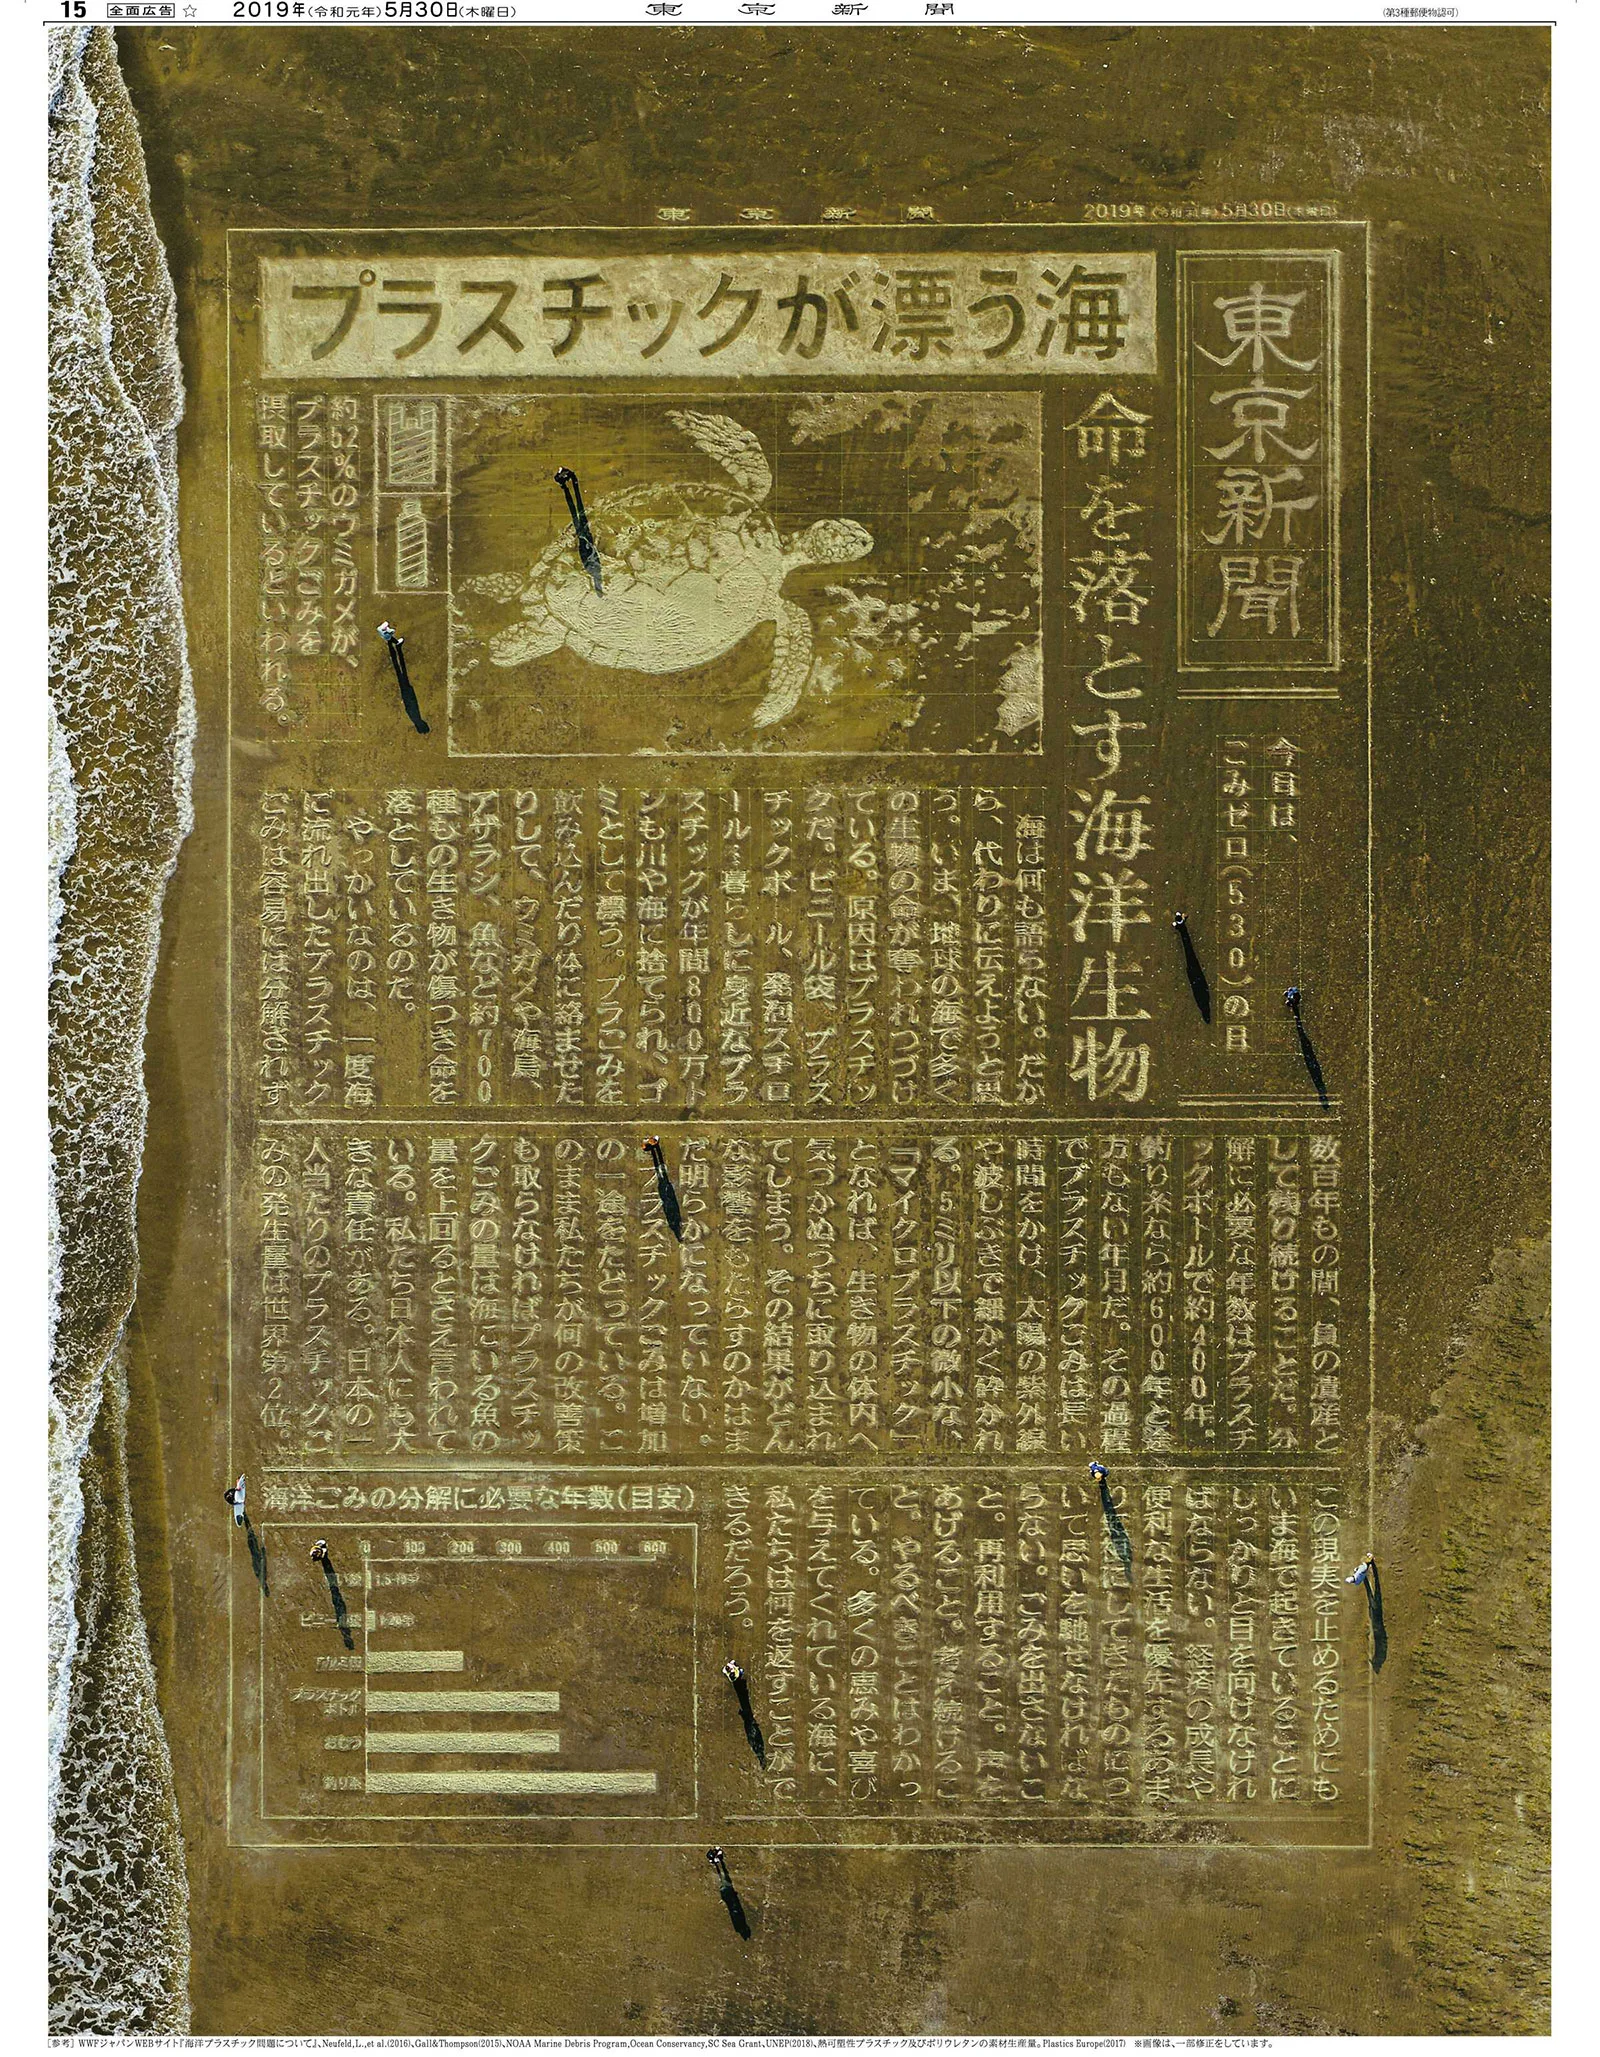 15 全面広告 ☆ 2019年(令和元年)5月30日(木曜日)
東京新聞
(第3種郵便物認可)
東京新聞
2019年(令和元年)5月30日(木曜日)
東京新聞
プラスチックが漂う海
命を落とす海洋生物
今日は、
ごみゼロ(530)の日
約52%のウミガメが、
プラスチックごみを
摂取しているといわれる。
海は何も語らない。だか
ら、代わりに伝えようと思
う。いま、地球の海で多く
の生物の命が奪われつづけ
ている。原因はプラスチッ
クだ。ビニール袋、プラス
チックボトル、発泡スチロ
ール…暮らしに身近なプラ
スチックが年間800万ト
ンも川や海に捨てられ、ゴ
ミとして漂う。プラごみを
飲み込んだり体に絡ませた
りして、ウミガメや海鳥、
アザラシ、魚など約700
種もの生き物が傷つき命を
落としているのだ。
やっかいなのは、一度海
に流れ出したプラスチック
ごみは容易には分解されず
数百年もの間、負の遺産と
して残り続けることだ。分
解に必要な年数はプラスチ
ックボトルで約400年。
釣り糸なら約600年と途
方もない年月だ。その過程
でプラスチックごみは長い
時間をかけ、太陽の紫外線
や波しぶきで細かく砕かれ
る。5ミリ以下の微小な、
「マイクロプラスチック」
となれば、生き物の体内へ
気づかぬうちに取り込まれ
てしまう。その結果がどん
な影響をもたらすのかはま
だ明らかになっていない。
プラスチックごみは増加
の一途をたどっている。こ
のまま私たちが何の改善策
も取らなければプラスチッ
クごみの量は海にいる魚の
量を上回るとさえ言われて
いる。私たち日本人にも大
きな責任がある。日本の一
人当たりのプラスチックご
みの発生量は世界第2位。
この現実を止めるためにも
いま海で起きていることに
しっかりと目を向けなけれ
ばならない。経済の成長や
便利な生活を優先するあま
り犠牲にしてきたものにつ
いて思いを馳せなければな
らない。ごみを出さないこ
と。再利用すること。声を
あげること。考え続けるこ
と。やるべきことはわかっ
ている。多くの恵みや喜び
を与えてくれている海に、
私たちは何を返すことがで
きるだろう。
海洋ごみの分解に必要な年数(目安)
0 100 200 300 400 500 600
1.5-10年
ビニール袋 1-20年
アルミ缶
プラスチック
ボトル
おむつ
釣り糸
[参考] WWFジャパンWEBサイト『海洋プラスチック問題について』、Neufeld,L.,et al.(2016)、Gall&Thompson(2015)、NOAA Marine Debris Program,Ocean Conservancy,SC Sea Grant、UNEP(2018)、熱可塑性プラスチック及びポリウレタンの素材生産量。Plastics Europe(2017) ※画像は、一部修正をしています。